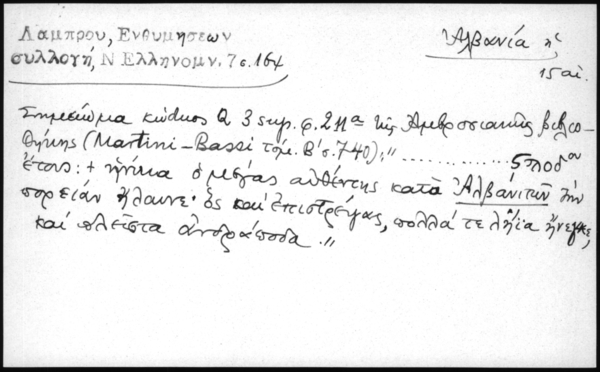 Λάμπρου, Ενθυμήσεων
συλλογή, Ν Ελληνομν. 7 σ. 164
Ἀλβανία ἡ
15 αἰ.
Σημείωμα κώδικος Q 3 sup. φ. 211α τῆς Ἀμβροσιανῆς βιβλιο-
θήκης (Martini-Bassi τόμ. Β' σ. 740): „ .................. ςποδον
ἔτους: + ἡνίκα ὁ μέγας αὐθέντης κατὰ Ἀλβανιτῶν τὴν
πορείαν ἤλαυνε· ὃς καὶ ἐπιστρέψας, πολλά τε λήϊα ἤνεγκε,
καὶ πλεῖστα ἀνδράποδα.”